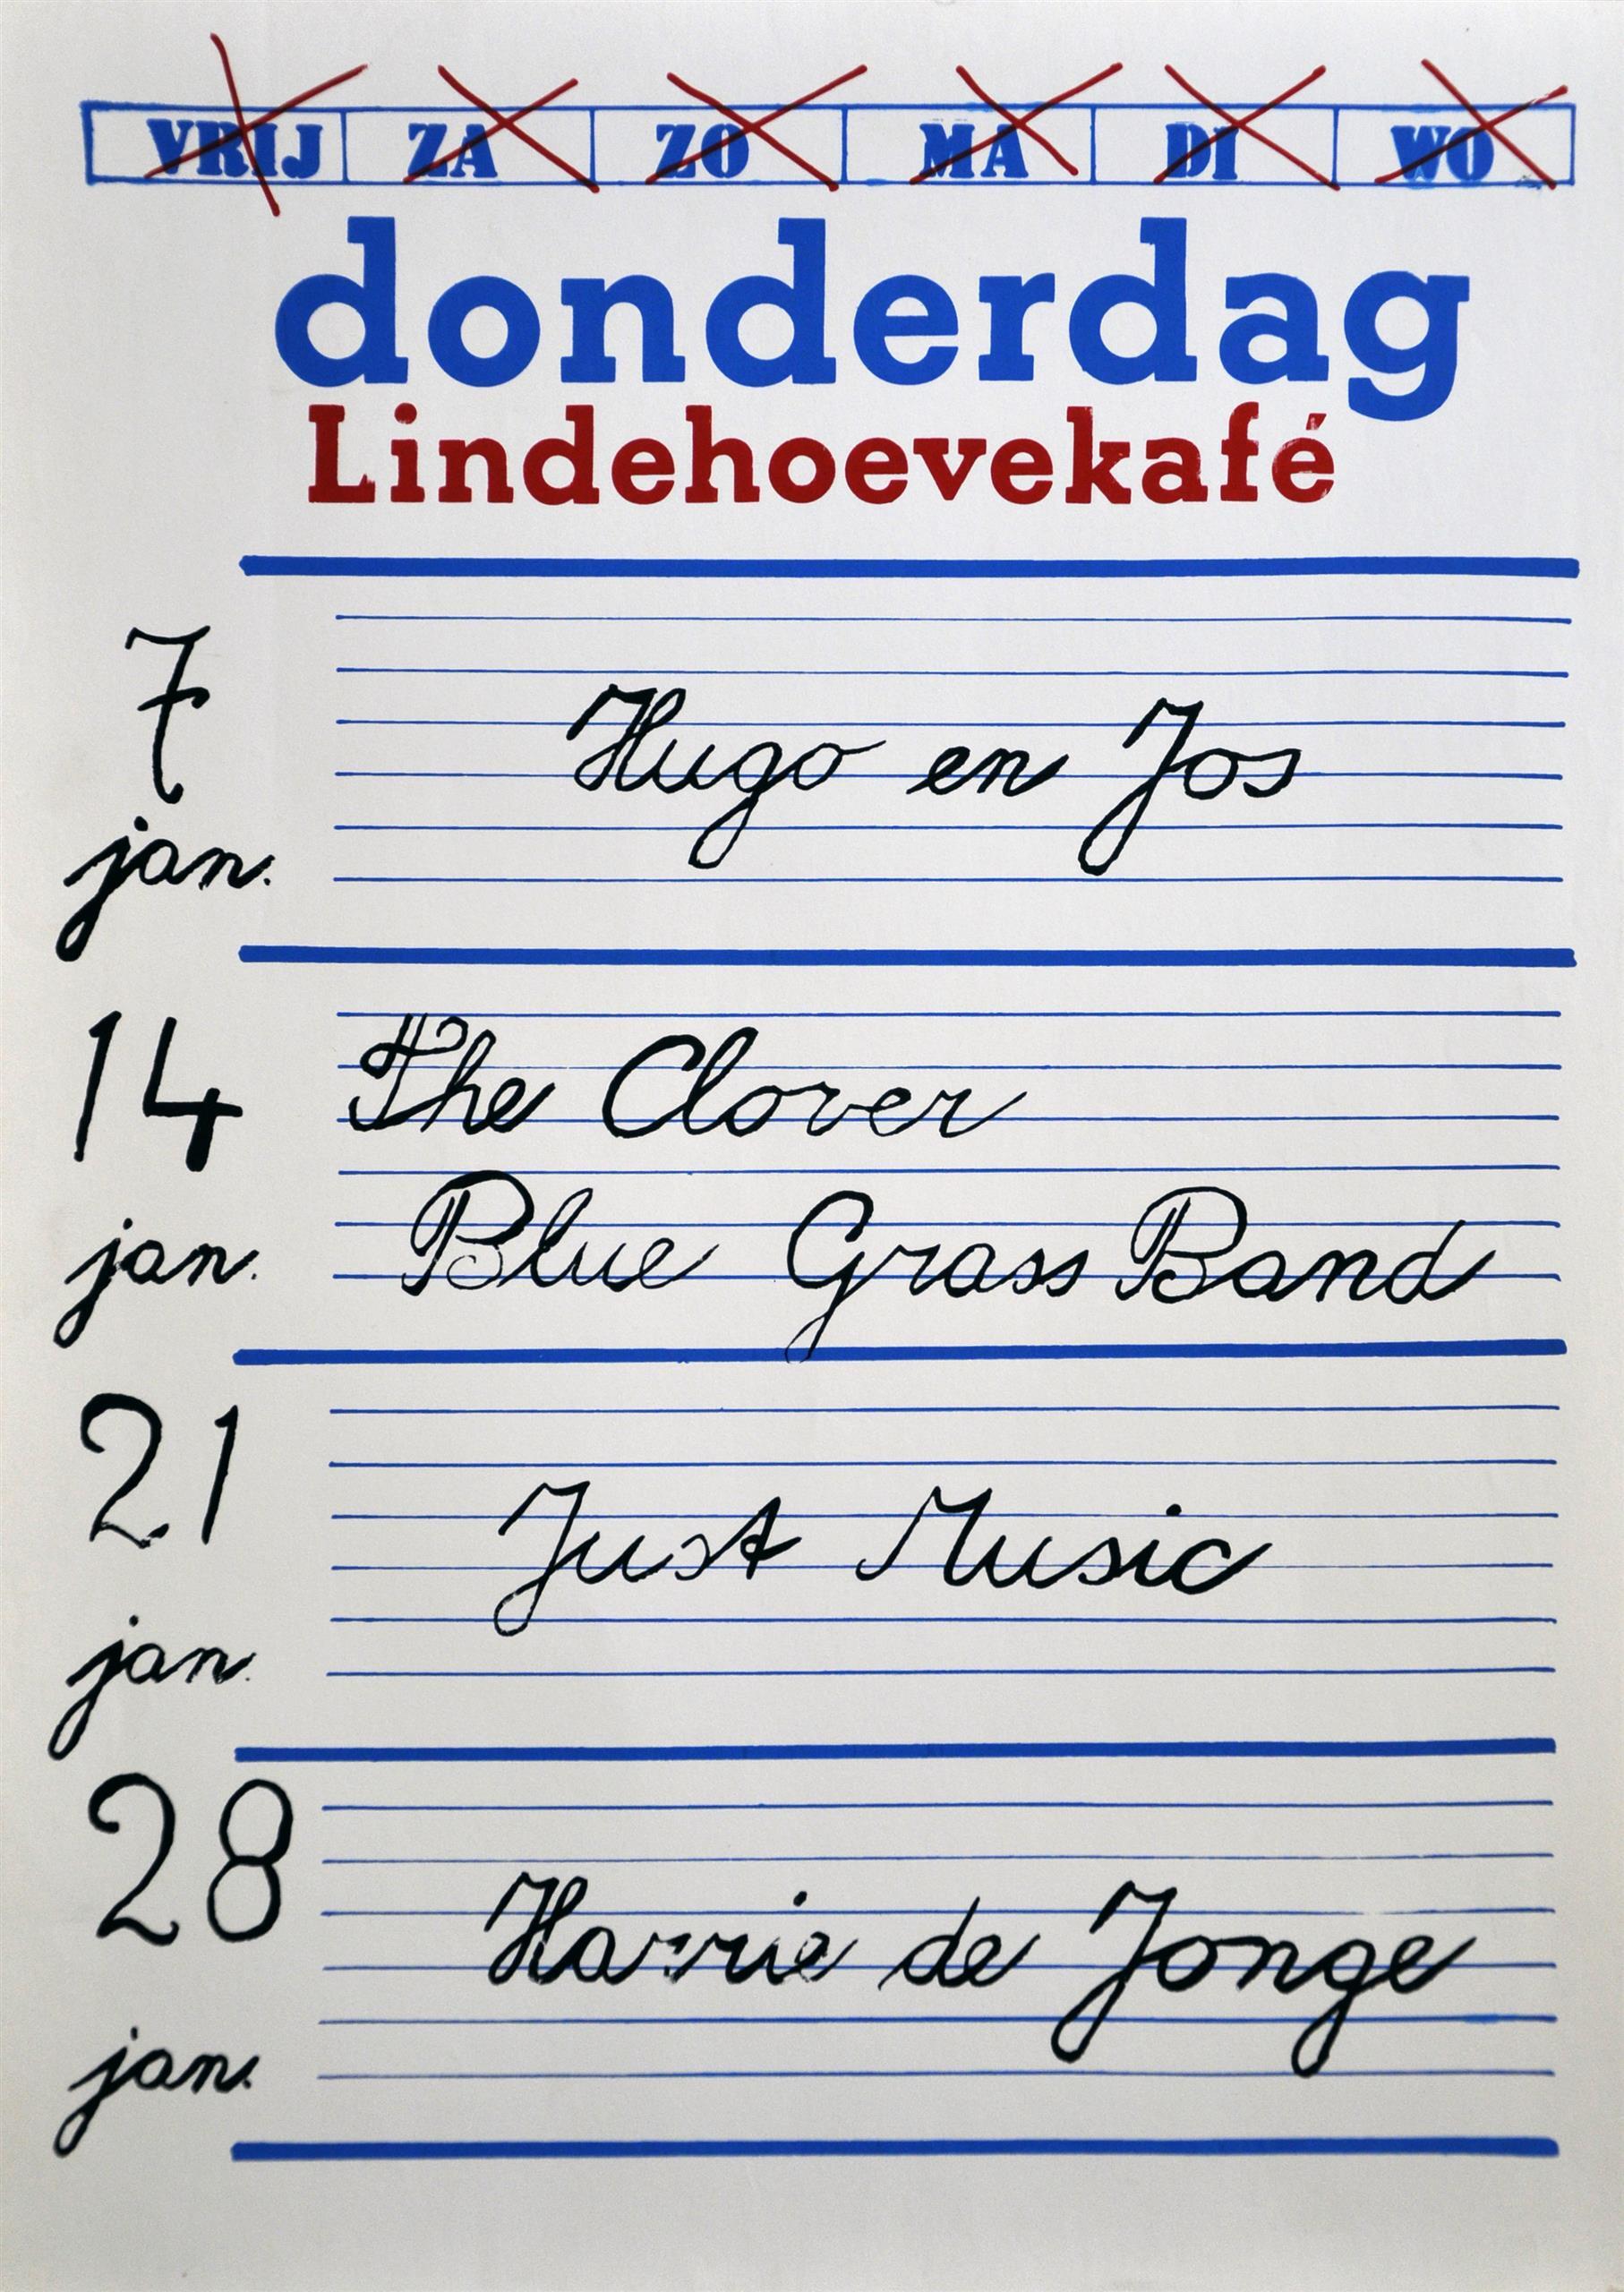 VRIJ ZA ZO MA DI WO
donderdag
Lindehoevekafé
7
jan.
Hugo en Jos
14
jan.
The Clover
Blue Grass Band
21
jan.
Just Music
28
jan.
Harrie de Jonge